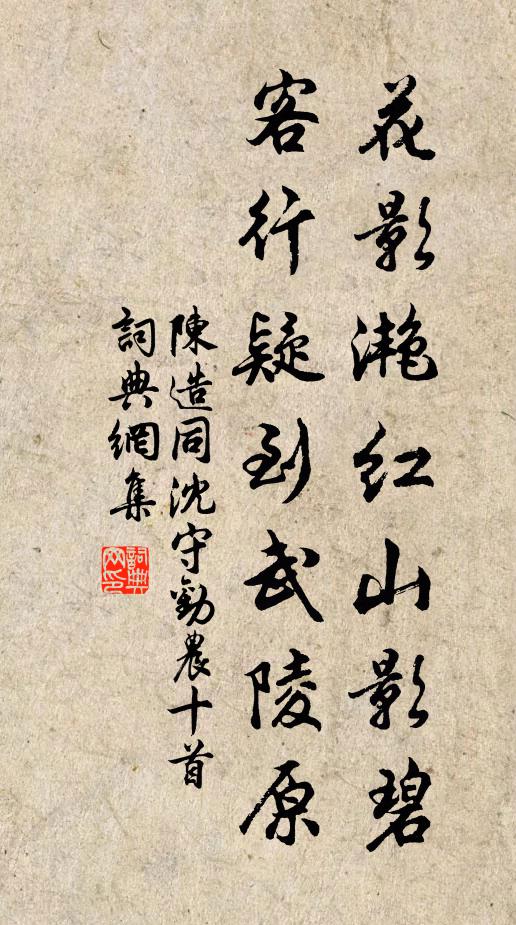 花影滟红山影碧
客行疑到武陵原
陳造同沈守勸農十首
詞典網集
詞典网印